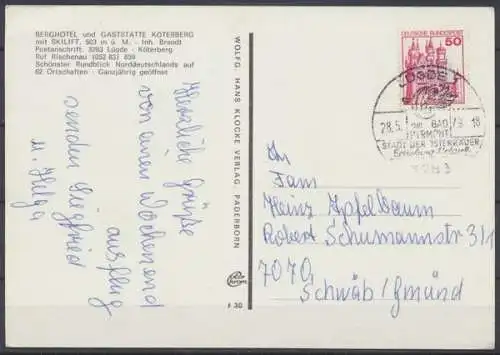 BERGHOTEL und GASTSTÄTTE KÖTERBERG
mit SKILIFT, 503 m ü. M. - Inh. Brandt
Postanschrift: 3283 Lügde - Köterberg
Ruf Rischenau (052 83) 839
Schönster Rundblick Norddeutschlands auf
62 Ortschaften - Ganzjährig geöffnet
Herzliche Grüße
von einen Wochenend
ausflug
senden Siegfried
u. Helga
WOLFG. HANS KLOCKE VERLAG, PADERBORN
F 30
DEUTSCHE BUNDESPOST
50
LÜGDE 1
28.5.
18
BAD
PYRMONT
STADT DER OSTERRÄDER
3283
An
Fam
Heinz Apfelbaum
Robert Schumannstr 31
7070
Schwäb/Gmünd